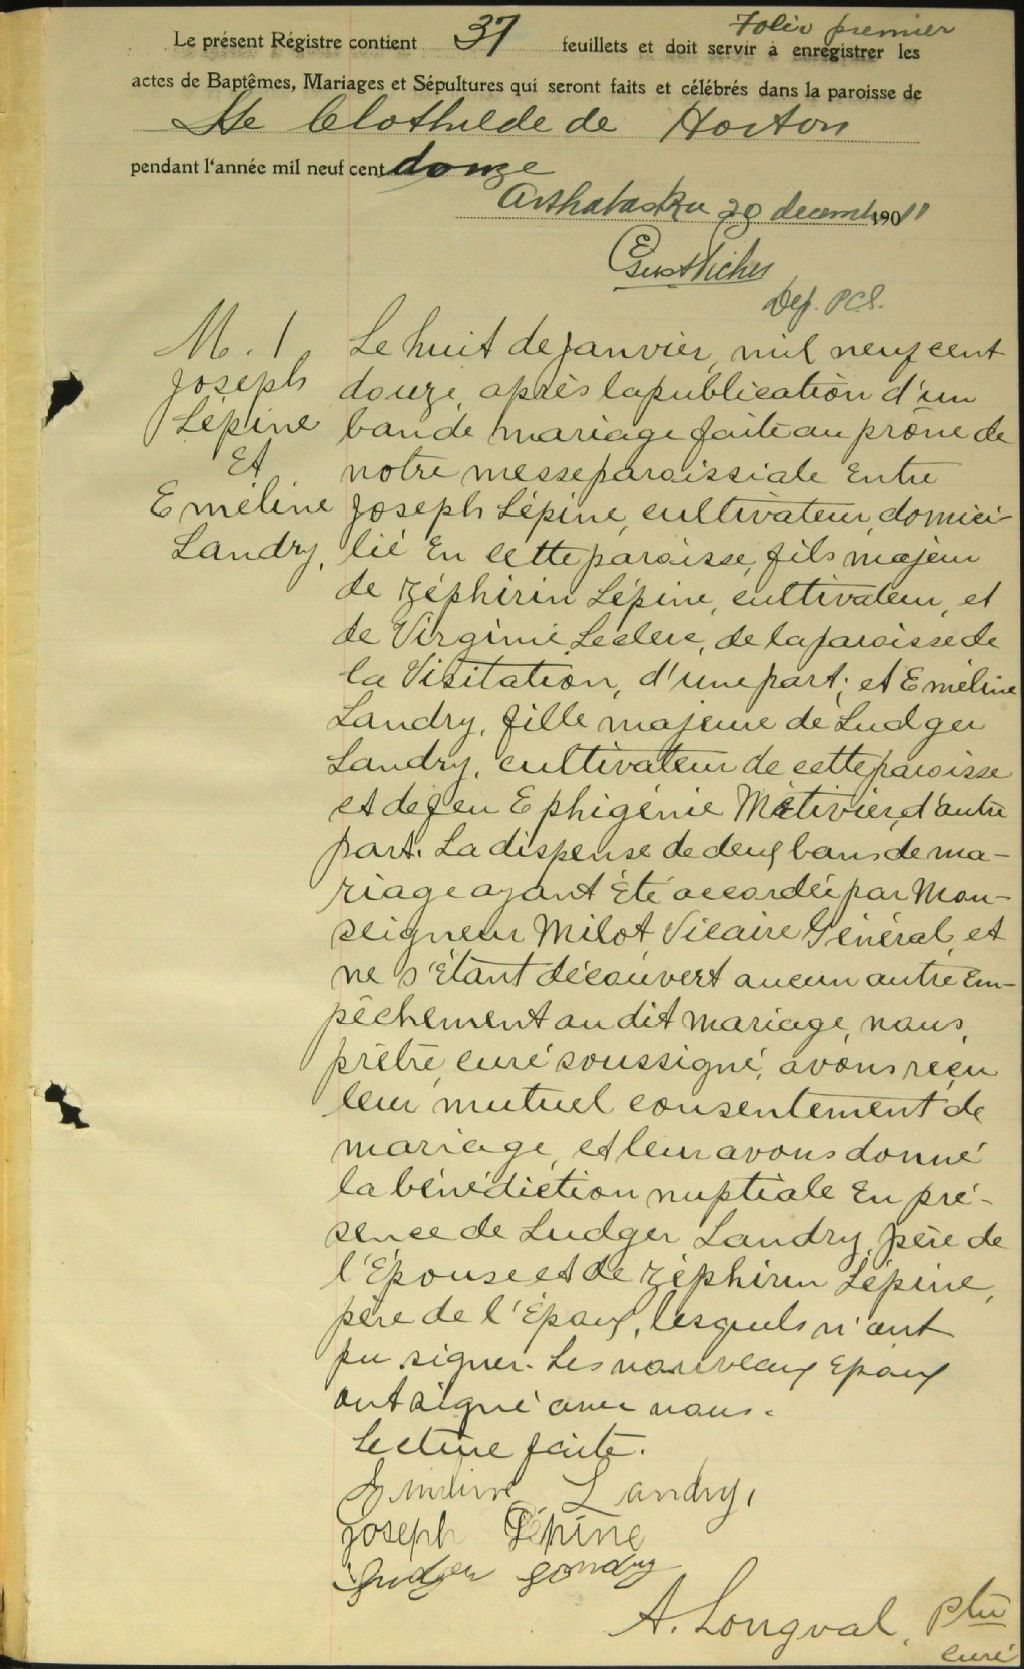 Folio premier
Le présent Régistre contient 37 feuillets et doit servir à enregistrer les
actes de Baptêmes, Mariages et Sépultures qui seront faits et célébrés dans la paroisse de
Ste Clothilde de Horton
pendant l'année mil neuf cent douze
Arthabaska 29 decemb 1911
Dep. P.C.S.
M. 1
Joseph
Lépine
Et
Eméline
Landry,
Le huit de janvier, mil neuf cent
douze, après la publication d'un
ban de mariage faite au prône de
notre messe paroissiale Entre
Joseph Lépine, cultivateur, domici-
lié En cette paroisse, fils majeur
de Zéphirin Lépine, cultivateur, et
de Virginie Leclerc, de la paroisse de
la Visitation, d'une part; et Eméline
Landry, fille majeure de Ludger
Landry, cultivateur de cette paroisse
et de feu Ephigénie Métivier, d'autre
part. La dispense de deux bans de ma-
riage ayant Été accordée par Mon-
seigneur Milot Vicaire Général, et
ne s'Étant découvert aucun autre Em-
pêchement au dit mariage, nous,
prêtre, curé soussigné, avons reçu
leur mutuel consentement de
mariage, et leur avons donné
la bénédiction nuptiale En pré-
sence de Ludger Landry, père de
l'Épouse et de Zéphirin Lépine,
père de l'Époux, lesquels n'ont
pu signer. Les nouveaux Epoux
ont signé avec nous.
Lecture faite.
Emeline Landry,
Joseph Lépine
Ludger Landry
A. Longval, Ptre
curé